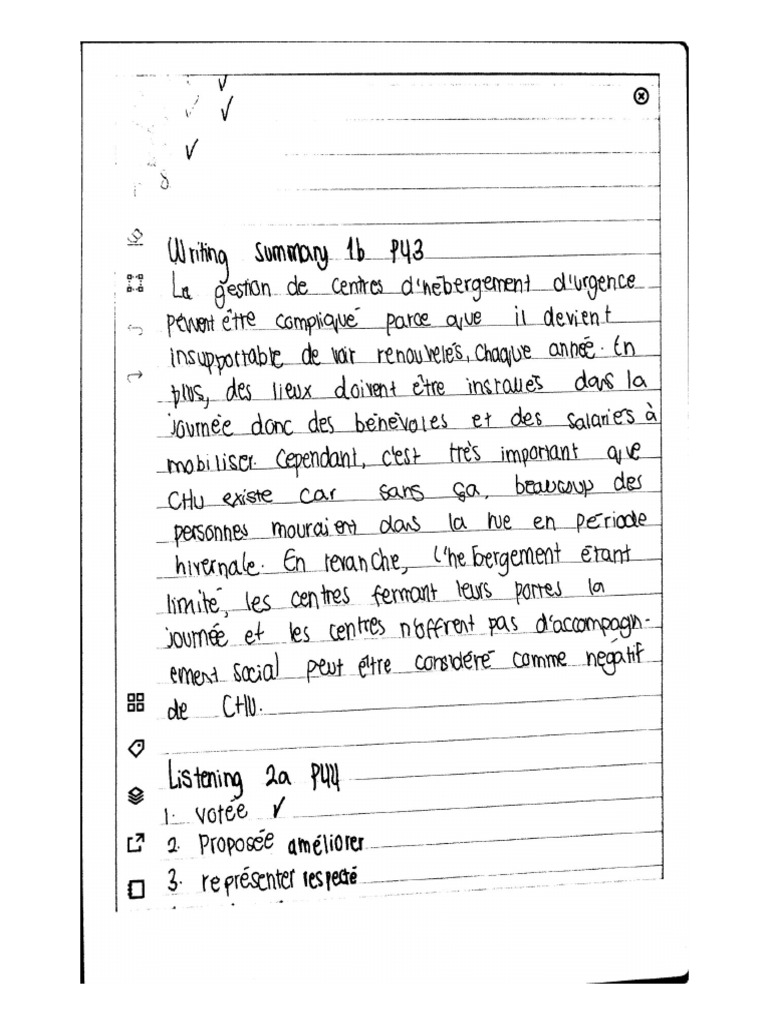 Writing summary 1b P43
La gestion de centres d'hébergement d'urgence
peuvent être compliqué parce que il devient
insupportable de voir renouvelés, chaque année. En
plus, des lieux doivent être installés dans la
journée donc des bénévoles et des salariés à
mobiliser. Cependant, c'est très important que
CHU existe car sans ça, beaucoup des
personnes mouraient dans la rue en période
hivernale. En revanche, l'hébergement étant
limité, les centres fermant leurs portes la
journée et les centres n'offrent pas d'accompagn-
ement social peut être considéré comme négatif
de CHU.
Listening 2a P44
1. votée ✓
2. Proposée améliorer
3. représenter respecté